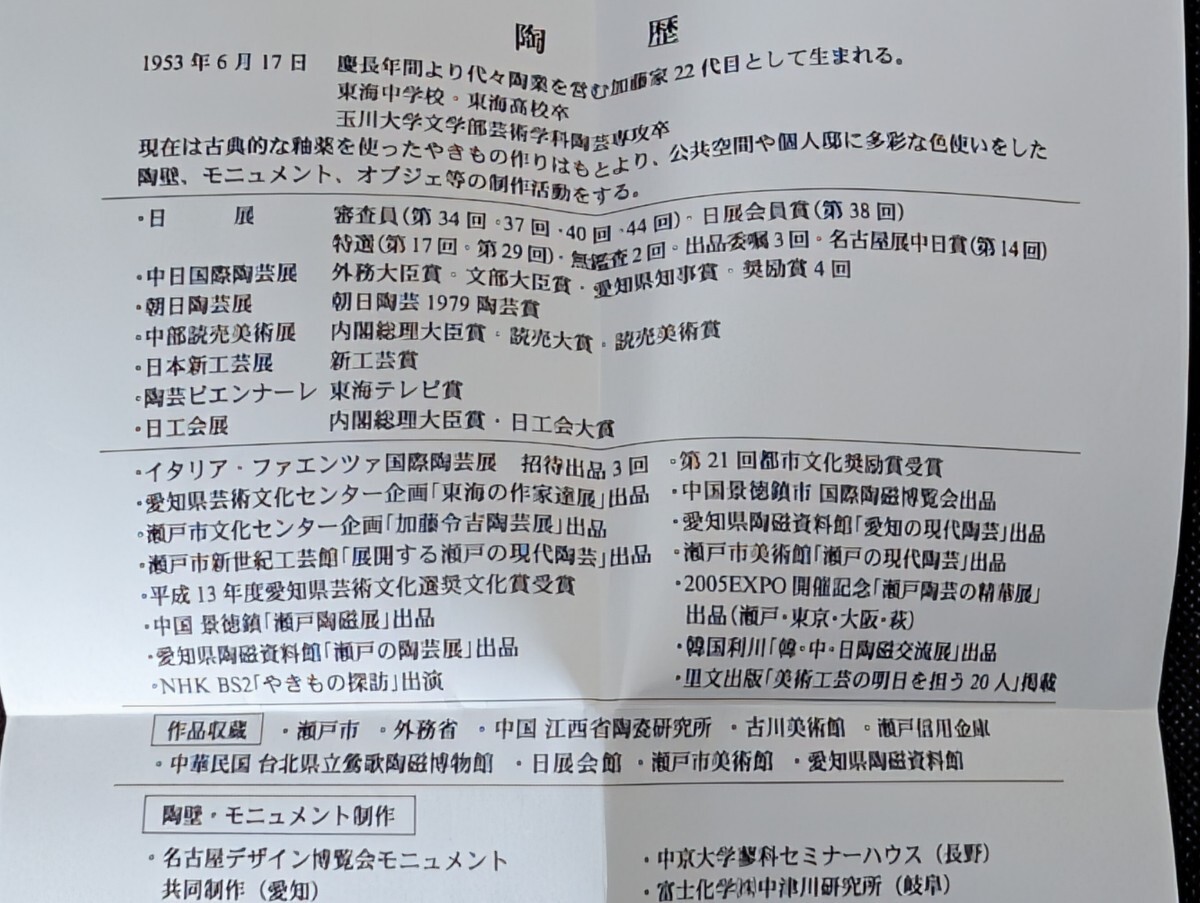 陶 歴
1953年6月17日 慶長年間より代々陶業を営む加藤家22代目として生まれる。
東海中学校・東海高校卒
玉川大学文学部芸術学科陶芸専攻卒
現在は古典的な釉薬を使ったやきもの作りはもとより、公共空間や個人邸に多彩な色使いをした
陶壁、モニュメント、オブジェ等の制作活動をする。
・日 展 審査員(第34回・37回・40回・44回)・日展会員賞(第38回)
特選(第17回・第29回)・無鑑査2回・出品委嘱3回・名古屋展中日賞(第14回)
・中日国際陶芸展 外務大臣賞・文部大臣賞・愛知県知事賞・奨励賞4回
・朝日陶芸展 朝日陶芸1979陶芸賞
・中部読売美術展 内閣総理大臣賞・読売大賞・読売美術賞
・日本新工芸展 新工芸賞
・陶芸ビエンナーレ 東海テレビ賞
・日工会展 内閣総理大臣賞・日工会大賞
・イタリア・ファエンツァ国際陶芸展 招待出品3回
・愛知県芸術文化センター企画「東海の作家達展」出品
・瀬戸市文化センター企画「加藤令吉陶芸展」出品
・瀬戸市新世紀工芸館「展開する瀬戸の現代陶芸」出品
・平成13年度愛知県芸術文化選奨文化賞受賞
・中国 景徳鎮「瀬戸陶磁展」出品
・愛知県陶磁資料館「瀬戸の陶芸展」出品
・NHK BS2「やきもの探訪」出演
・第21回都市文化奨励賞受賞
・中国景徳鎮市 国際陶磁博覧会出品
・愛知県陶磁資料館「愛知の現代陶芸」出品
・瀬戸市美術館「瀬戸の現代陶芸」出品
・2005EXPO開催記念「瀬戸陶芸の精華展」
出品(瀬戸・東京・大阪・萩)
・韓国利川「韓・中・日陶磁交流展」出品
・里文出版「美術工芸の明日を担う20人」掲載
作品収蔵 ・瀬戸市 ・外務省 ・中国 江西省陶瓷研究所 ・古川美術館 ・瀬戸信用金庫
・中華民国 台北県立鶯歌陶磁博物館 ・日展会館 ・瀬戸市美術館 ・愛知県陶磁資料館
陶壁・モニュメント制作
・名古屋デザイン博覧会モニュメント
共同制作(愛知)
・中京大学蓼科セミナーハウス(長野)
・富士化学㈱中津川研究所(岐阜)